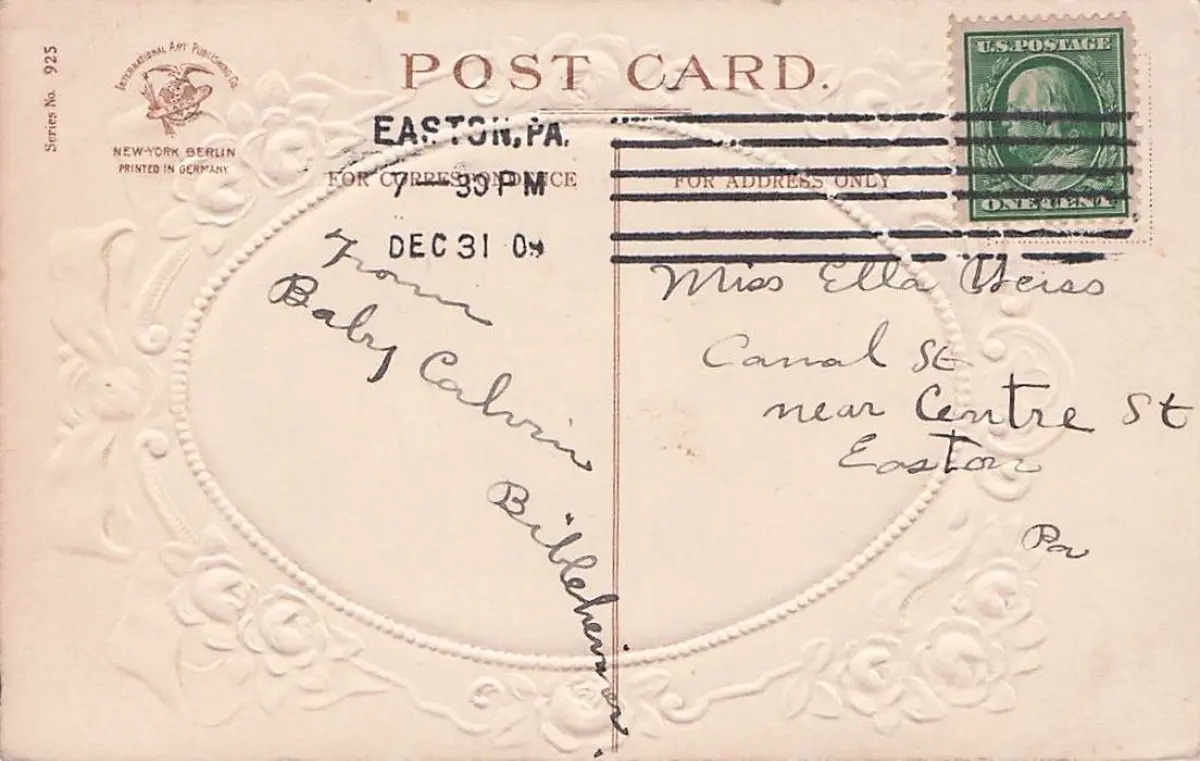 Series No. 925
INTERNATIONAL ART PUBLISHING CO.
NEW-YORK BERLIN
PRINTED IN GERMANY
POST CARD.
U.S. POSTAGE
ONE CENT
EASTON, PA.
7 - 30 PM
DEC 31 09
FOR CORRESPONDENCE
FOR ADDRESS ONLY
From
Baby Calvin
Miss Ella Weiss
Canal St
near Centre St
Easton
Pa